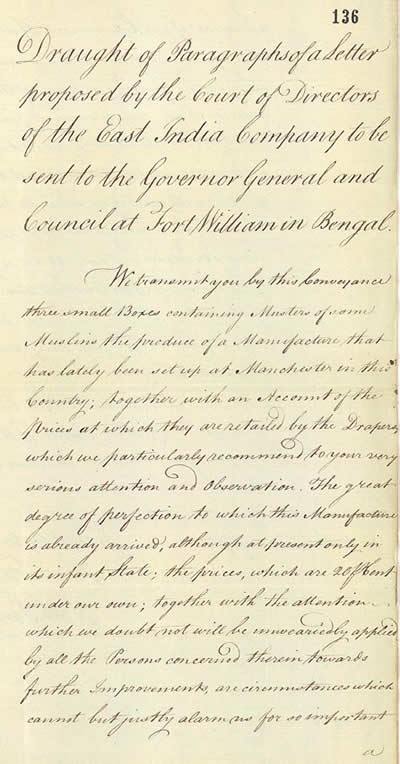 136
Draught of Paragraphs of a Letter
proposed by the Court of Directors
of the East India Company to be
sent to the Governor General and
Council at Fort William in Bengal.
We transmit you by this Conveyance
three small Boxes containing Musters of some
Muslins the produce of a Manufacture that
has lately been set up at Manchester in this
Country; together with an Account of the
Prices at which they are retailed by the Drapers,
which we particularly recommend to your very
serious attention and Observation. The great
degree of perfection to which this Manufacture
is already arrived, although at present only in
its infant State; the prices, which are 20 P Cent
under our own; together with the attention
which we doubt not will be unweariedly applied
by all the Persons concerned therein towards
further Improvements, are circumstances which
cannot but justly alarm us for so important
a